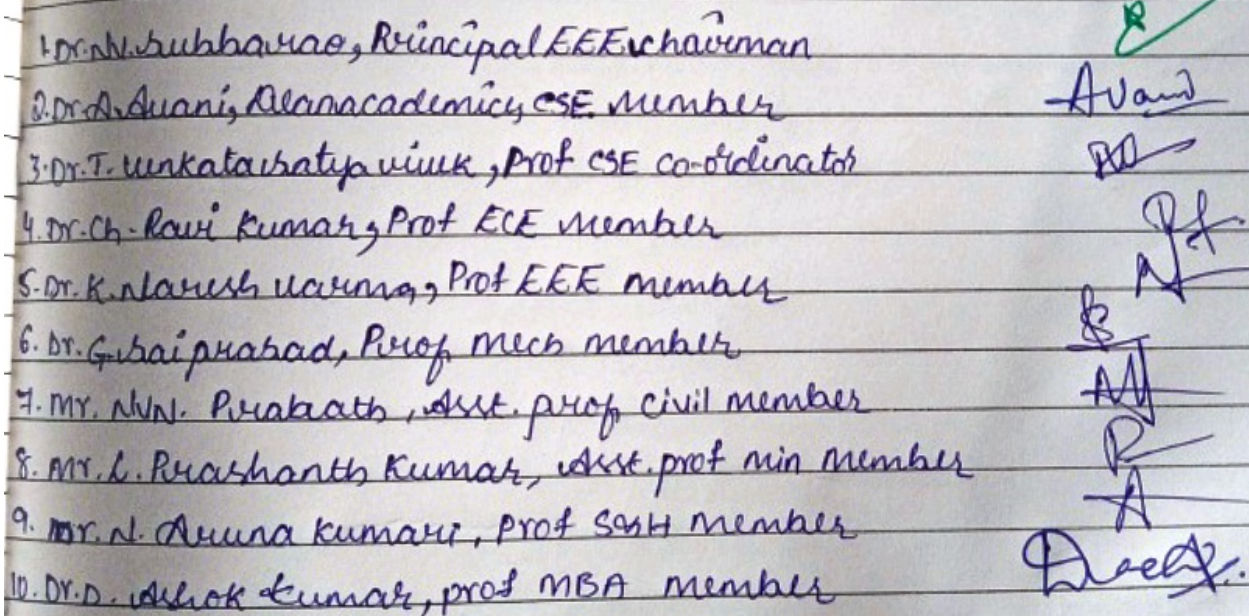 1. Dr. N. Subbarao, Principal EEE chairman
2. Dr. A. Avani, Deanacademics, CSE Member Avani
3. Dr. T. Venkata satya vivek, Prof CSE co-ordinator
4. Dr. Ch. Ravi Kumar, Prof ECE Member
5. Dr. K. Naresh varma, Prof EEE member
6. Dr. G. Sai prasad, Prof mech member
7. Mr. NVN. Prakath, Asst. prof civil member
8. Mr. L. Prashanth Kumar, Asst. prof min member
9. Mr. N. Aruna Kumari, Prof S&H member
10. Dr. D. Ashok Kumar, prof MBA member